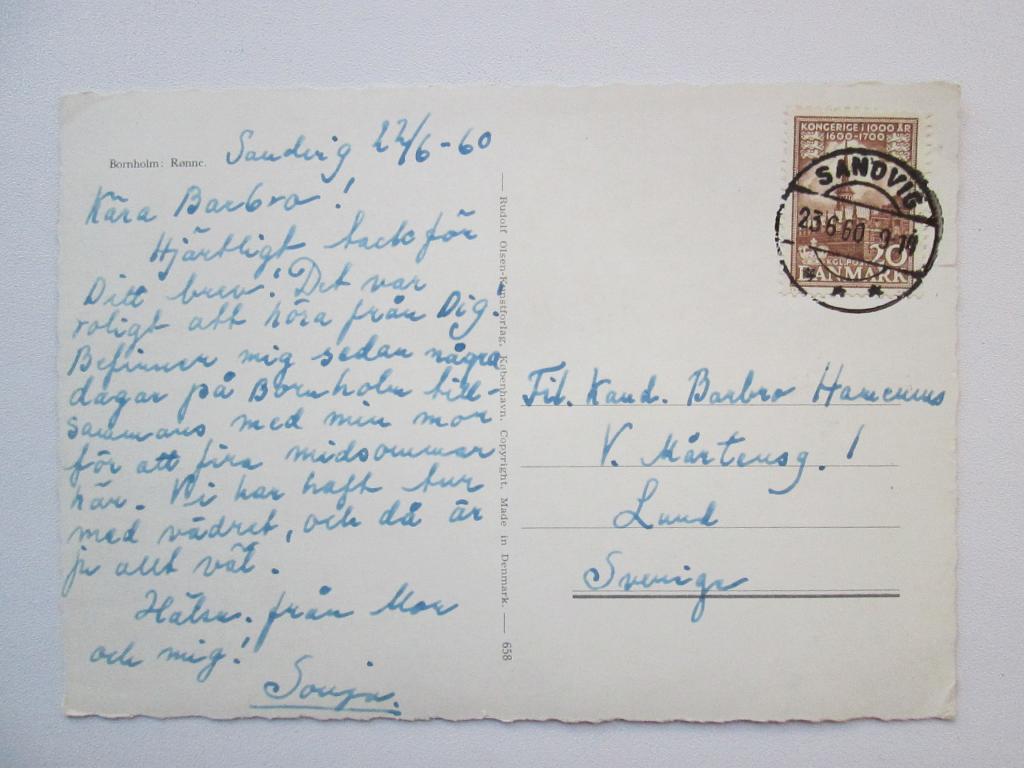 Bornholm: Rønne.
Sandvig 22/6-60
Kära Barbro!
Hjärtligt tack för
Ditt brev! Det var
roligt att höra från Dig!
Befinner mig sedan några
dagar på Bornholm till-
sammans med min mor
för att fira midsommar
här. Vi har haft tur
med vädret, och då är
ju allt väl.
Hälsn. från Mor
och mig!
Sonja.
Rudolf Olsen-Kunstforlag, København. Copyright. Made in Denmark. — 658
KONGERIGE I 1000 ÅR
1600-1700
20
DANMARK
SANDVIG
23 6 60 9-19
Fil. Kand. Barbro
V. Mårtensg. 1
Lund
Sverige